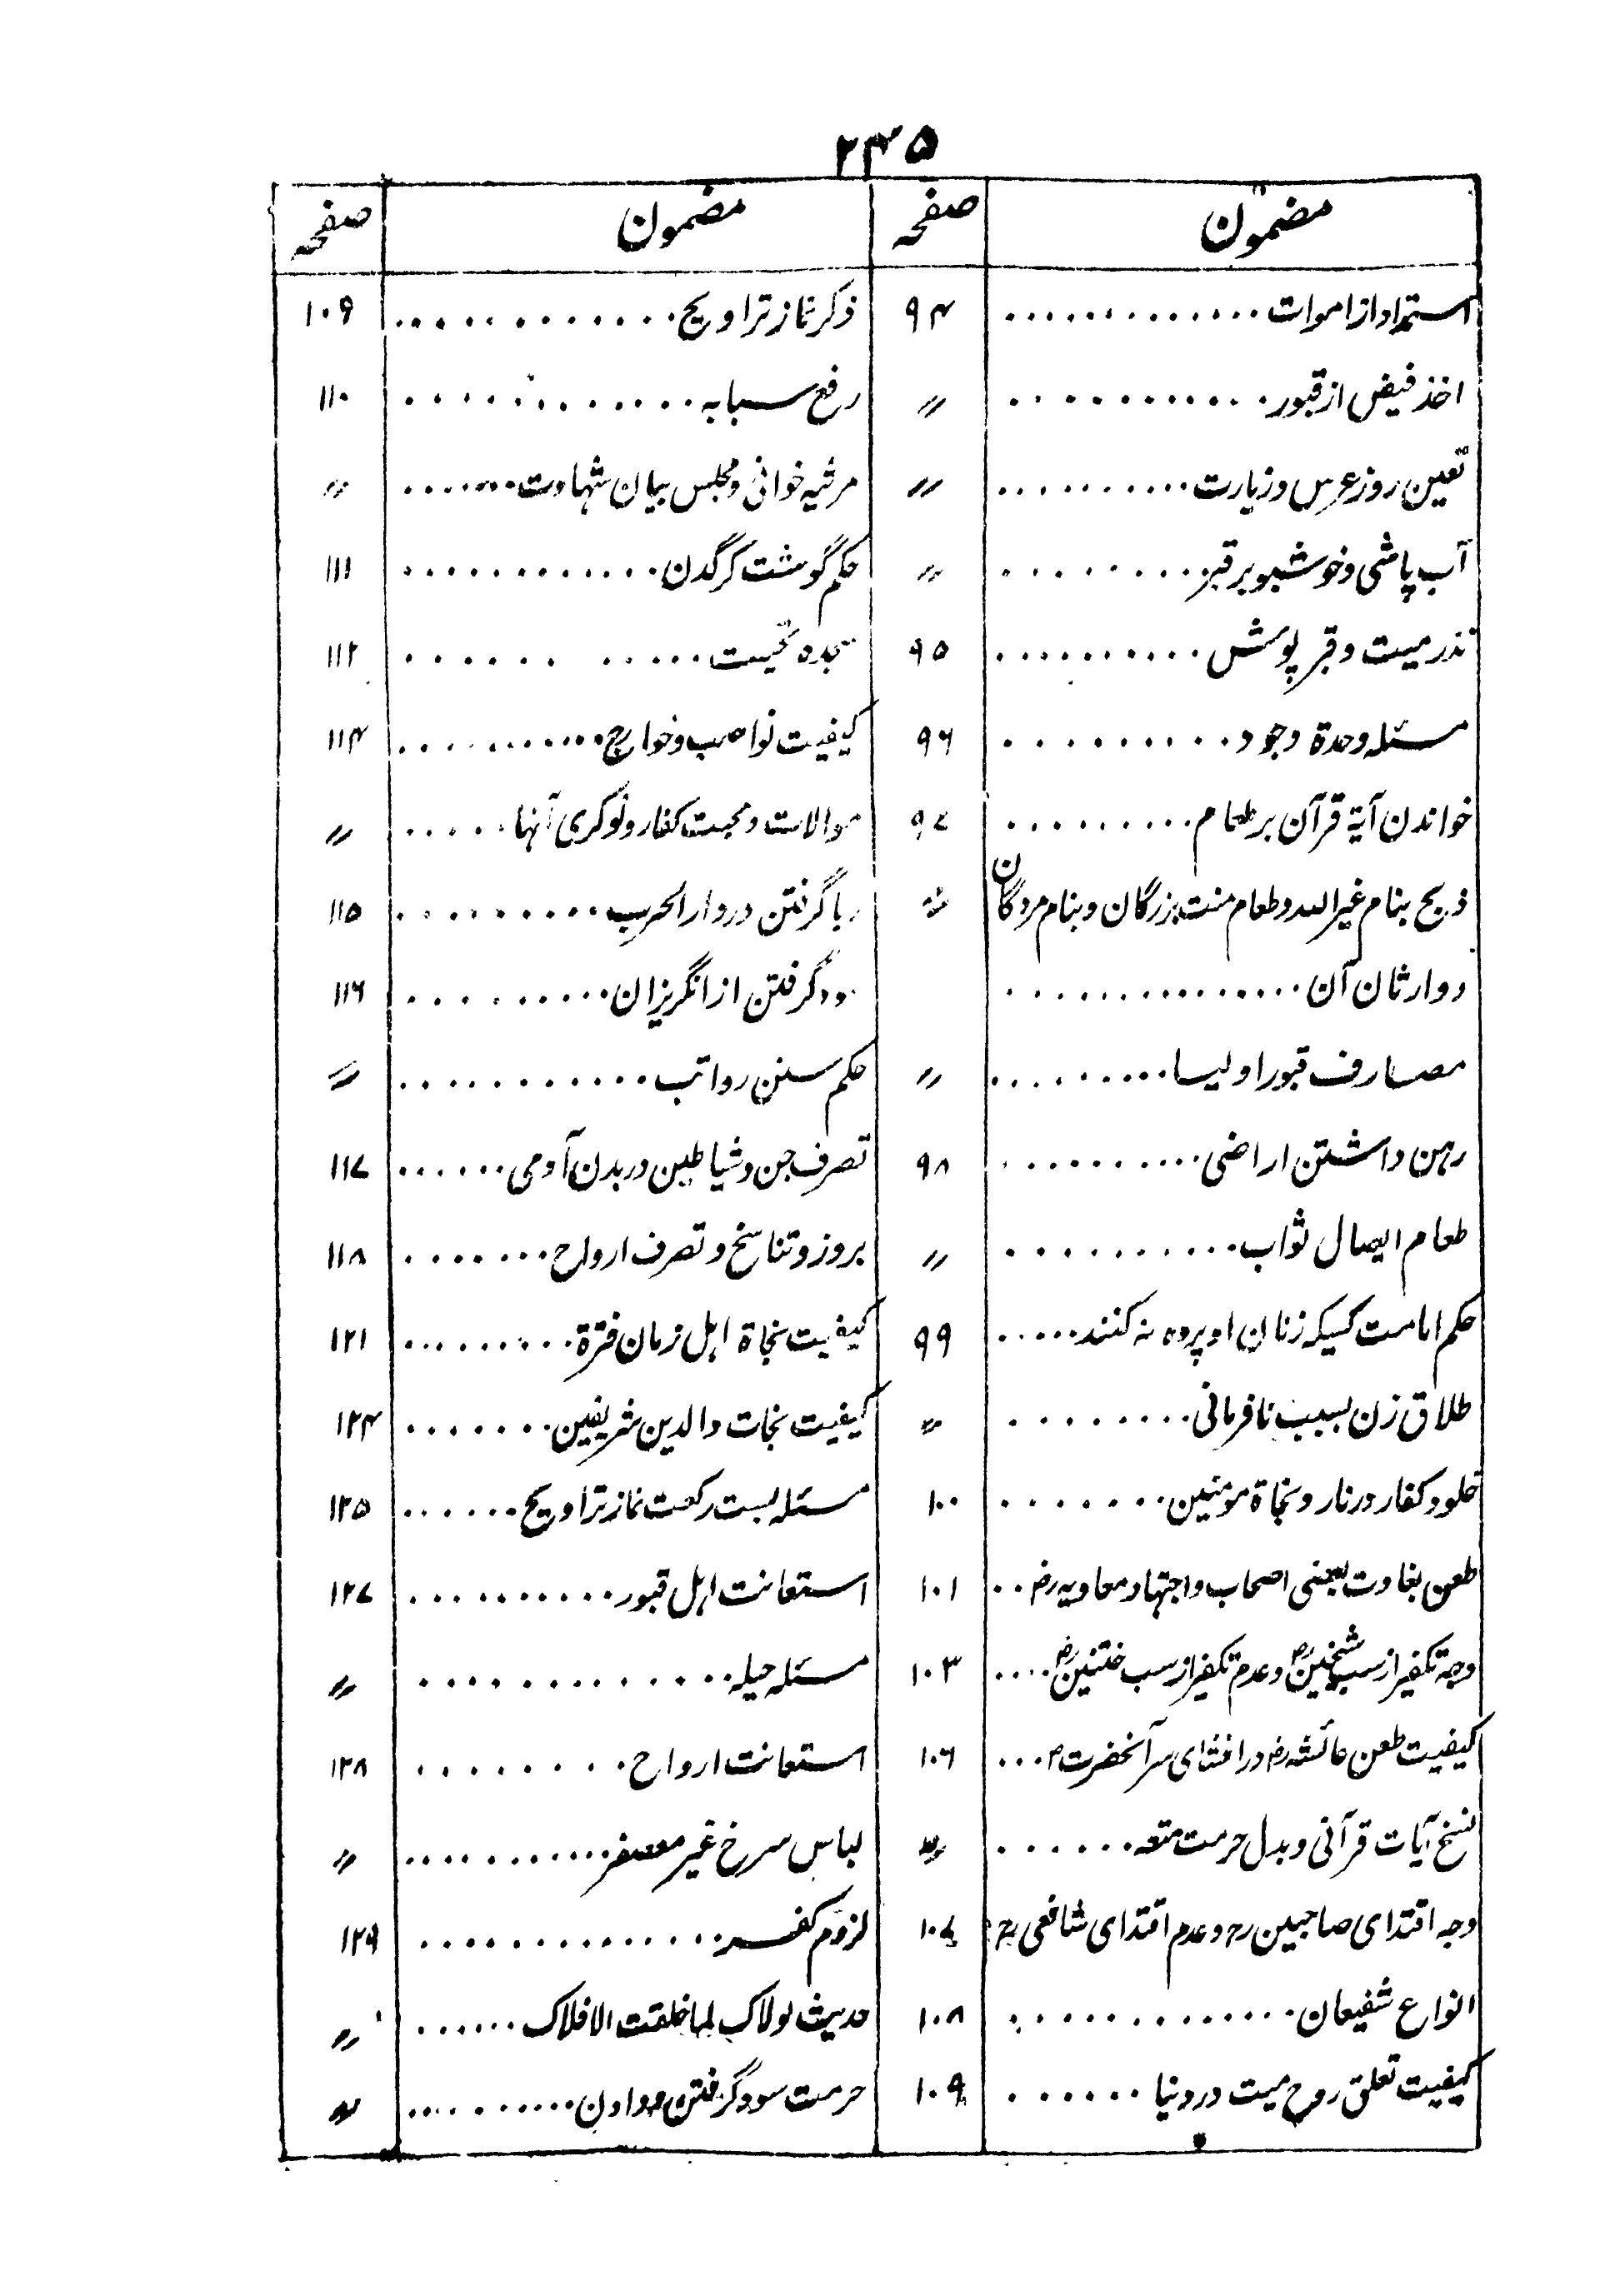 ۲۴۵
مضمون صفحہ مضمون صفحہ
استمداد از اموات ............. ۹۴
اخذ فیض از قبور ............ 〃
تعین روز عرس و زیارت .......... 〃
آب پاشی و خوشبو بر قبر ......... 〃
نذر میت و قبر پوشش .......... ۹۵
مسئلہ وحدۃ وجود .......... ۹۶
خواندن آیۃ قرآن بر طعام .......... ۹۷
ذبح بنام غیر اللہ و طعام منت بزرگان و بنام مردگان 〃
و وارثان آن ...............
مصارف قبور اولیا .......... 〃
رہن داشتن اراضی .......... ۹۸
طعام ایصال ثواب ........... 〃
حکم امامت کسیکہ زنان او پردہ نہ کنند ..... ۹۹
طلاق زن بسبب نافرمانی ......... 〃
خلود کفار در نار و نجاۃ مومنین ........ ۱۰۰
طعن بغاوت بعضی اصحاب و اجتہاد معاویہ رض .. ۱۰۱
وجہ تکفیر از سب شیخین رض و عدم تکفیر از سب ختنین رض .... ۱۰۳
کیفیت طعن عائشہ رض در افشای سر آنحضرت ص ... ۱۰۶
نسخ آیات قرآنی و بدل حرمت متعہ ...... 〃
وجہ اقتدای صاحبین رح و عدم اقتدای شافعی رح ۱۰۷
انواع شفیعان ............. ۱۰۸
کیفیت تعلق روح میت در دنیا ...... ۱۰۹
ذکر نماز تراویح ............. ۱۰۹
رفع سبابہ ............ ۱۱۰
مرثیہ خوانی و مجلس بیان شہادت ....... 〃
حکم گوشت کرگدن ............ ۱۱۱
سجدہ تحیت ........... ۱۱۲
کیفیت نواصب و خوارج ........... ۱۱۴
موالات و محبت کفار و نوکری آنہا ..... 〃
ربا گرفتن در دار الحرب .......... ۱۱۵
سود گرفتن از انگریزان .......... ۱۱۶
حکم سنن رواتب ............ 〃
تصرف جن و شیاطین در بدن آدمی ...... ۱۱۷
بروز و تناسخ و تصرف ارواح ........ ۱۱۸
کیفیت نجاۃ اہل زمان فترۃ .......... ۱۲۱
کیفیت نجات والدین شریفین ........ ۱۲۴
مسئلہ بست رکعت نماز تراویح ...... ۱۲۵
استعانت اہل قبور ........... ۱۲۷
مسئلہ حیلہ ............. 〃
استعانت ارواح ......... ۱۲۸
لباس سرخ غیر معصفر ........... 〃
لزوم کفر .............. ۱۲۹
حدیث لولاک لما خلقت الافلاک ...... 〃
حرمت سود گرفتن و دادن ........... 〃